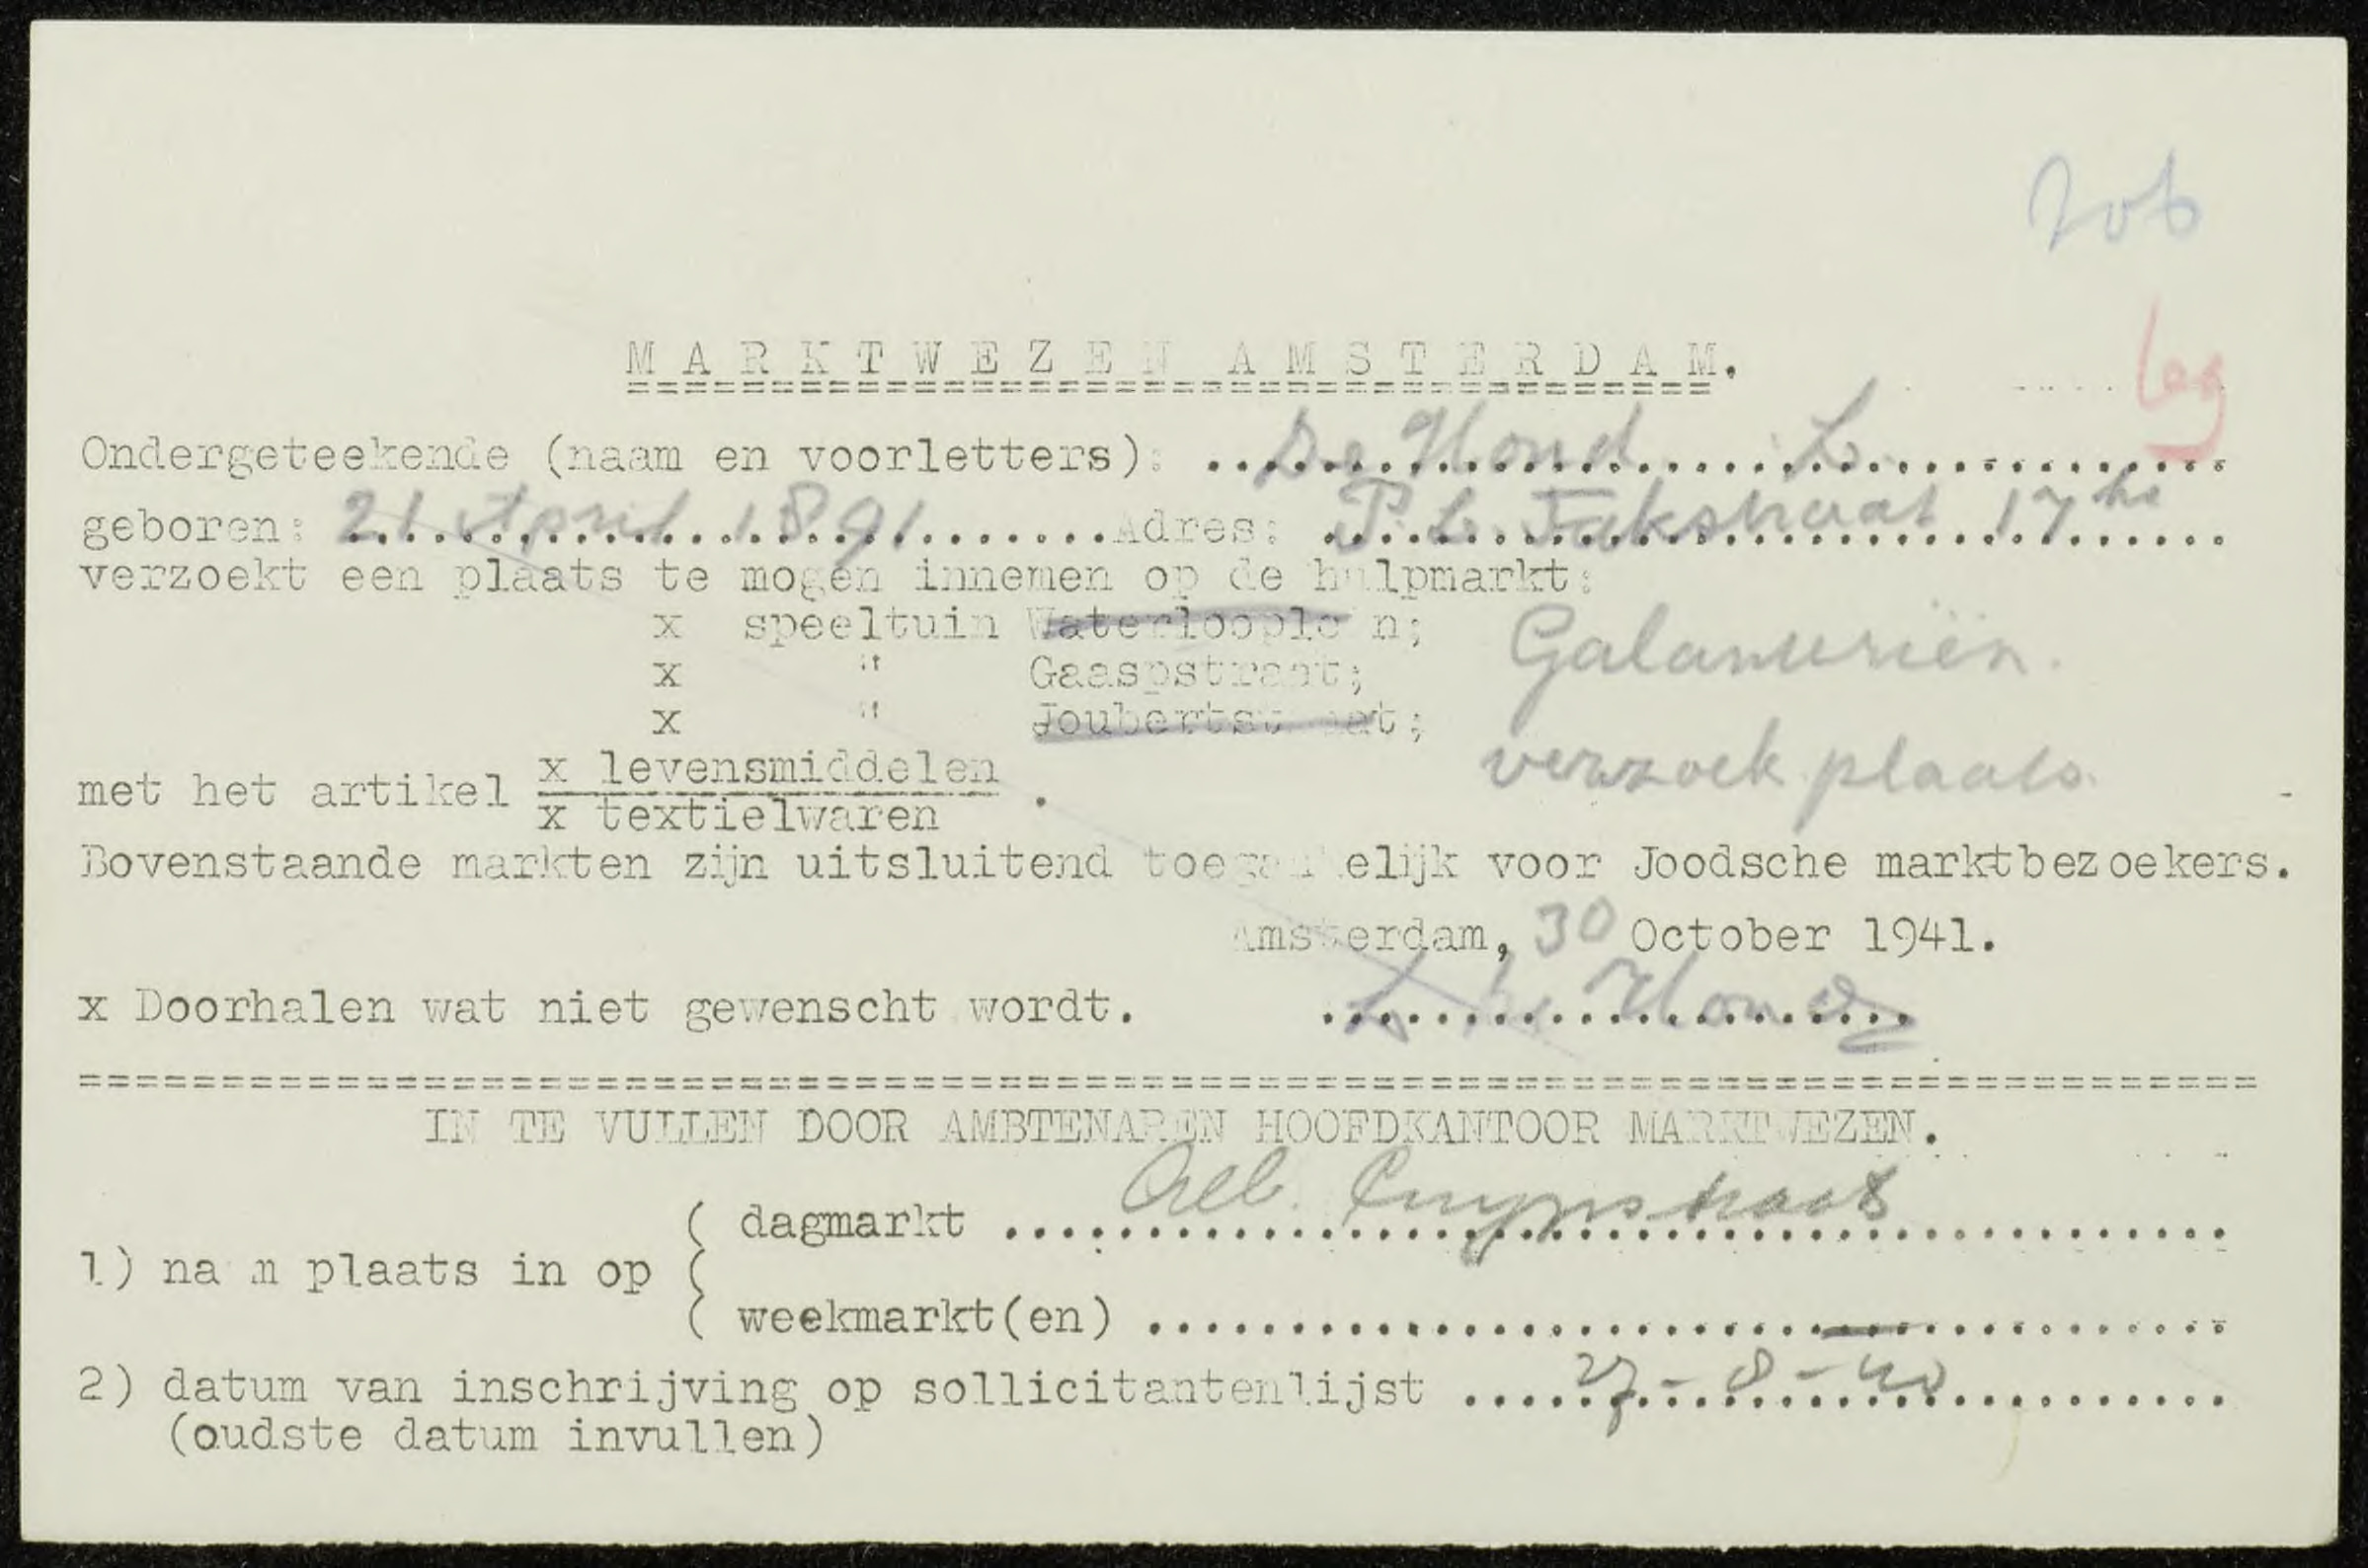 M A R K T W E Z E N A M S T E R D A M.
Ondergeteekende (naam en voorletters): De Hond L.
geboren: 21 April 1891 Adres: P. L. Takstraat 17 hs
verzoekt een plaats te mogen innemen op de hulpmarkt:
x speeltuin Waterlooplein;
x " Gaaspstraat;
x " Joubertstraat;
Galanteriën.
verzoek plaats.
met het artikel x levensmiddelen
x textielwaren.
Bovenstaande markten zijn uitsluitend toegankelijk voor Joodsche marktbezoekers.
Amsterdam, 30 October 1941.
x Doorhalen wat niet gewenscht wordt. L. de Hond
IN TE VULLEN DOOR AMBTENAREN HOOFDKANTOOR MARKTWEZEN.
( dagmarkt Alb. Cuypstraat
1) nam plaats in op (
( weekmarkt(en) —
2) datum van inschrijving op sollicitantenlijst 27-8-40
(oudste datum invullen)